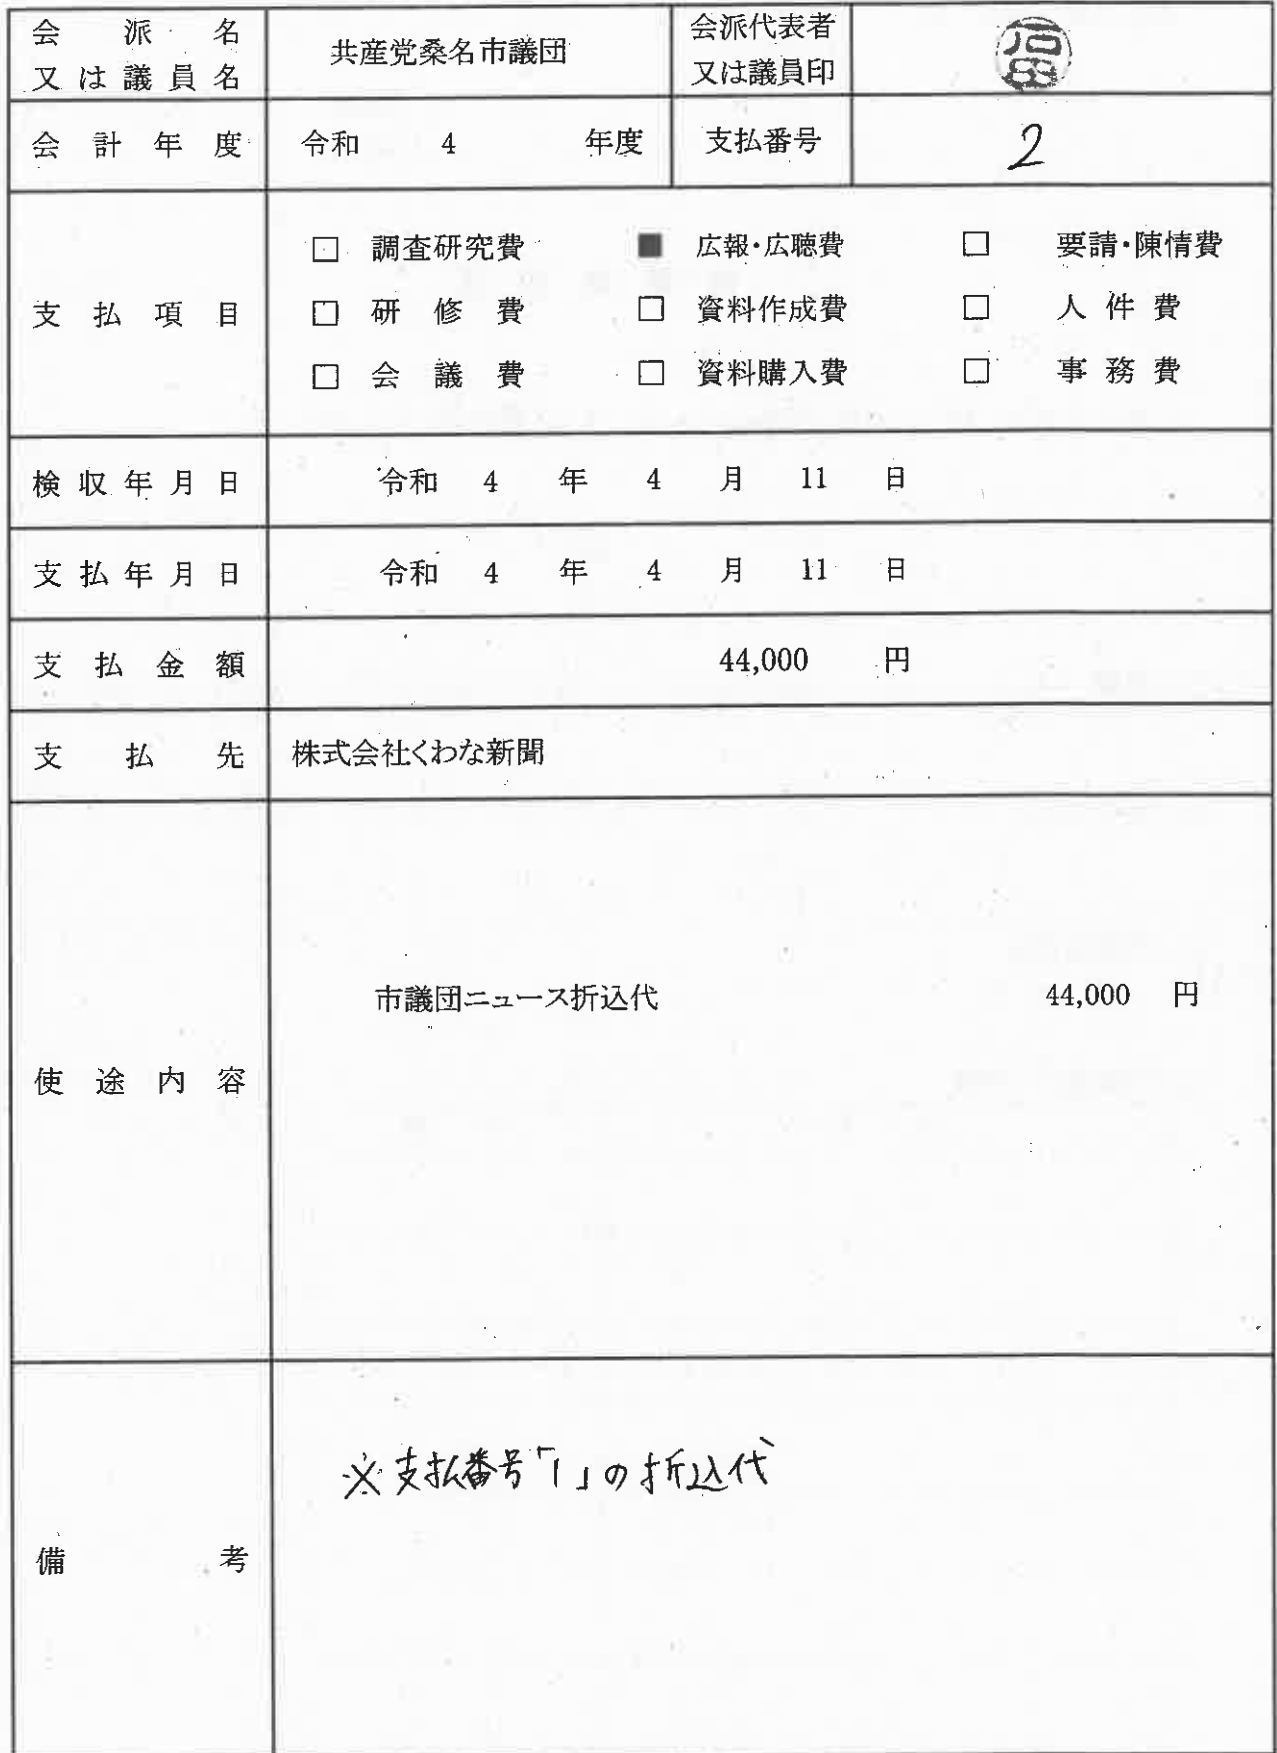 会派名
又は議員名
共産党桑名市議団
会派代表者
又は議員印
会計年度
令和 4 年度
支払番号
2
支払項目
□ 調査研究費 ■ 広報・広聴費 □ 要請・陳情費
□ 研修費 □ 資料作成費 □ 人件費
□ 会議費 □ 資料購入費 □ 事務費
検収年月日
令和 4 年 4 月 11 日
支払年月日
令和 4 年 4 月 11 日
支払金額
44,000 円
支払先
株式会社くわな新聞
使途内容
市議団ニュース折込代 44,000 円
備考
※支払番号「1」の折込代